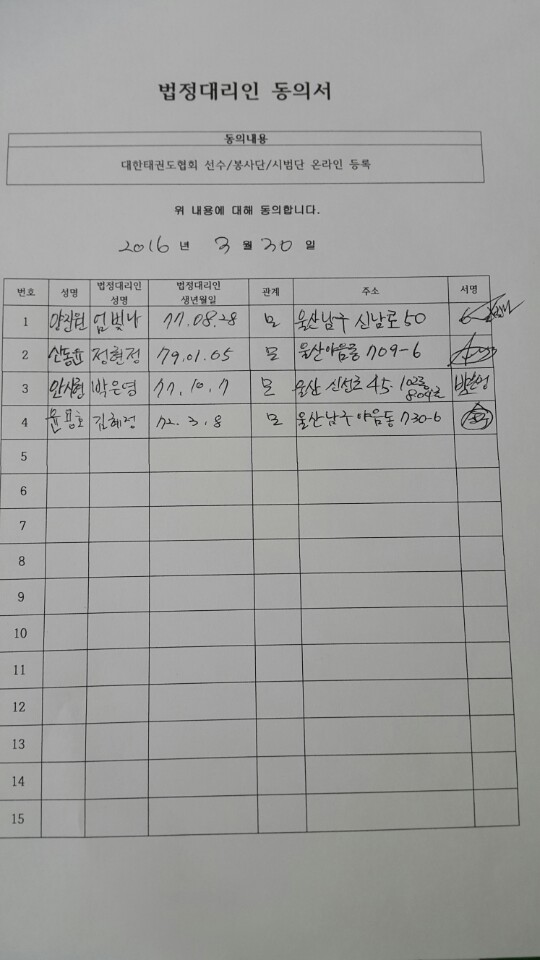 법정대리인 동의서
동의내용
대한태권도협회 선수/봉사단/시범단 온라인 등록
위 내용에 대해 동의합니다.
2016 년 3 월 30 일
번호 성명 법정대리인 성명 법정대리인 생년월일 관계 주소 서명
1 엄빛나 77.08.28 모 울산남구 신남로 50
2 신동윤 정현정 79.01.05 모 울산야음동 709-6
3 안시현 박은영 77.10.7 모 울산 신선로 45. 102동 809호 박은영
4 윤용호 김혜정 72.3.8 모 울산남구 야음동 730-6
5
6
7
8
9
10
11
12
13
14
15